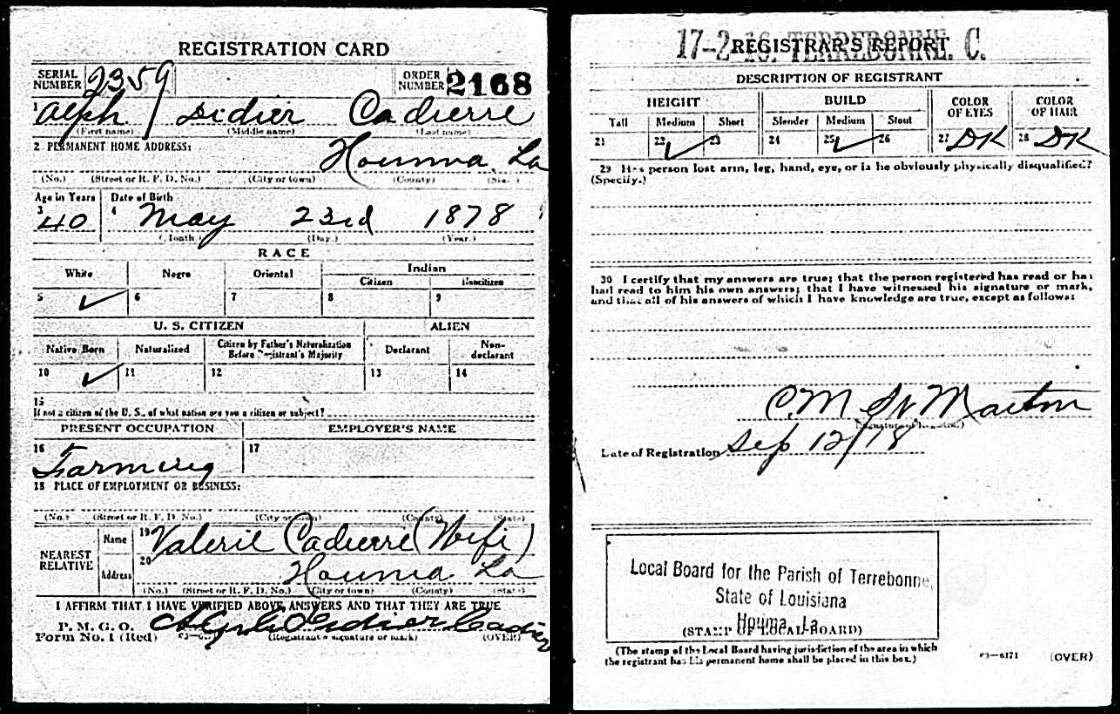 REGISTRATION CARD
SERIAL NUMBER 2359 ORDER NUMBER 2168
1 Alph Didier Cadierre
(First name) (Middle name) (Last name)
2 PERMANENT HOME ADDRESS:
Houma La
(No.) (Street or R. F. D. No.) (City or town) (County) (State)
Age in Years Date of Birth
3 40 4 May 23rd 1878
(Month) (Day.) (Year.)
RACE
White Negro Oriental Indian
Citizen Noncitizen
5 ✓ 6 7 8 9
U. S. CITIZEN ALIEN
Native Born Naturalized Citizen by Father's Naturalization Before Registrant's Majority Declarant Non-declarant
10 ✓ 11 12 13 14
15
If not a citizen of the U. S., of what nation are you a citizen or subject?
PRESENT OCCUPATION EMPLOYER'S NAME
16 Farming 17
18 PLACE OF EMPLOYMENT OR BUSINESS:
(No.) (Street or R. F. D. No.) (City or town) (County) (State)
NEAREST RELATIVE Name 19 Valerie Cadierre (Wife)
Address 20 Houma La
(No.) (Street or R. F. D. No.) (City or town) (County) (State)
I AFFIRM THAT I HAVE VERIFIED ABOVE ANSWERS AND THAT THEY ARE TRUE
P. M. G. O.
Form No. 1 (Red) (Registrant's signature or mark) (OVER)
Didier
17-2-16. TERREBONNE. C.
REGISTRAR'S REPORT
DESCRIPTION OF REGISTRANT
HEIGHT BUILD COLOR OF EYES COLOR OF HAIR
Tall Medium Short Slender Medium Stout
21 22 ✓ 23 24 25 ✓ 26 27 DK 28 DK
29 Has person lost arm, leg, hand, eye, or is he obviously physically disqualified?
(Specify.)
30 I certify that my answers are true; that the person registered has read or has
had read to him his own answers; that I have witnessed his signature or mark,
and that all of his answers of which I have knowledge are true, except as follows:
(Signature of Registrar)
Date of Registration Sep 12/18
Local Board for the Parish of Terrebonne,
State of Louisiana
Houma, La.
(STAMP OF LOCAL BOARD)
(The stamp of the Local Board having jurisdiction of the area in which
the registrant has his permanent home shall be placed in this box.)
03—6171 (OVER)